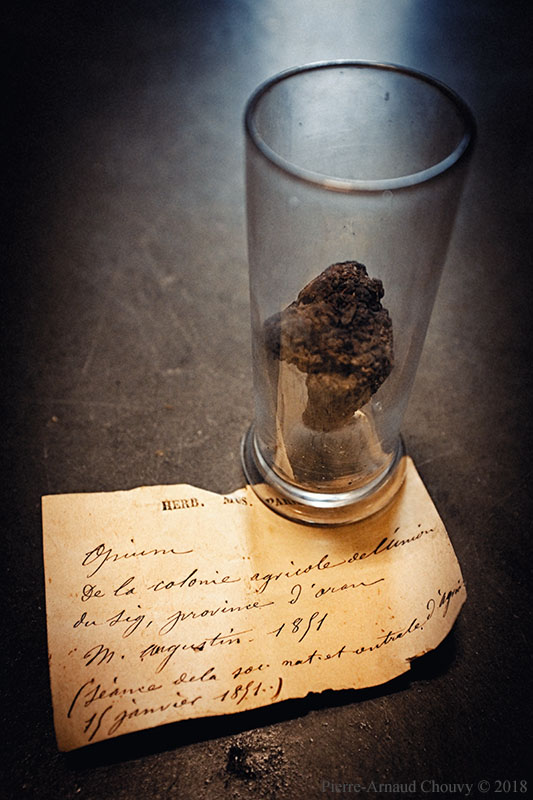 HERB. MUS. PAR
Opium
De la colonie agricole de l'Union
du Sig, province d'oran
M. Augustin 1851
(Séance de la soc. nat. et centrale d'Agric
15 janvier 1851.)
Pierre-Arnaud Chouvy © 2018